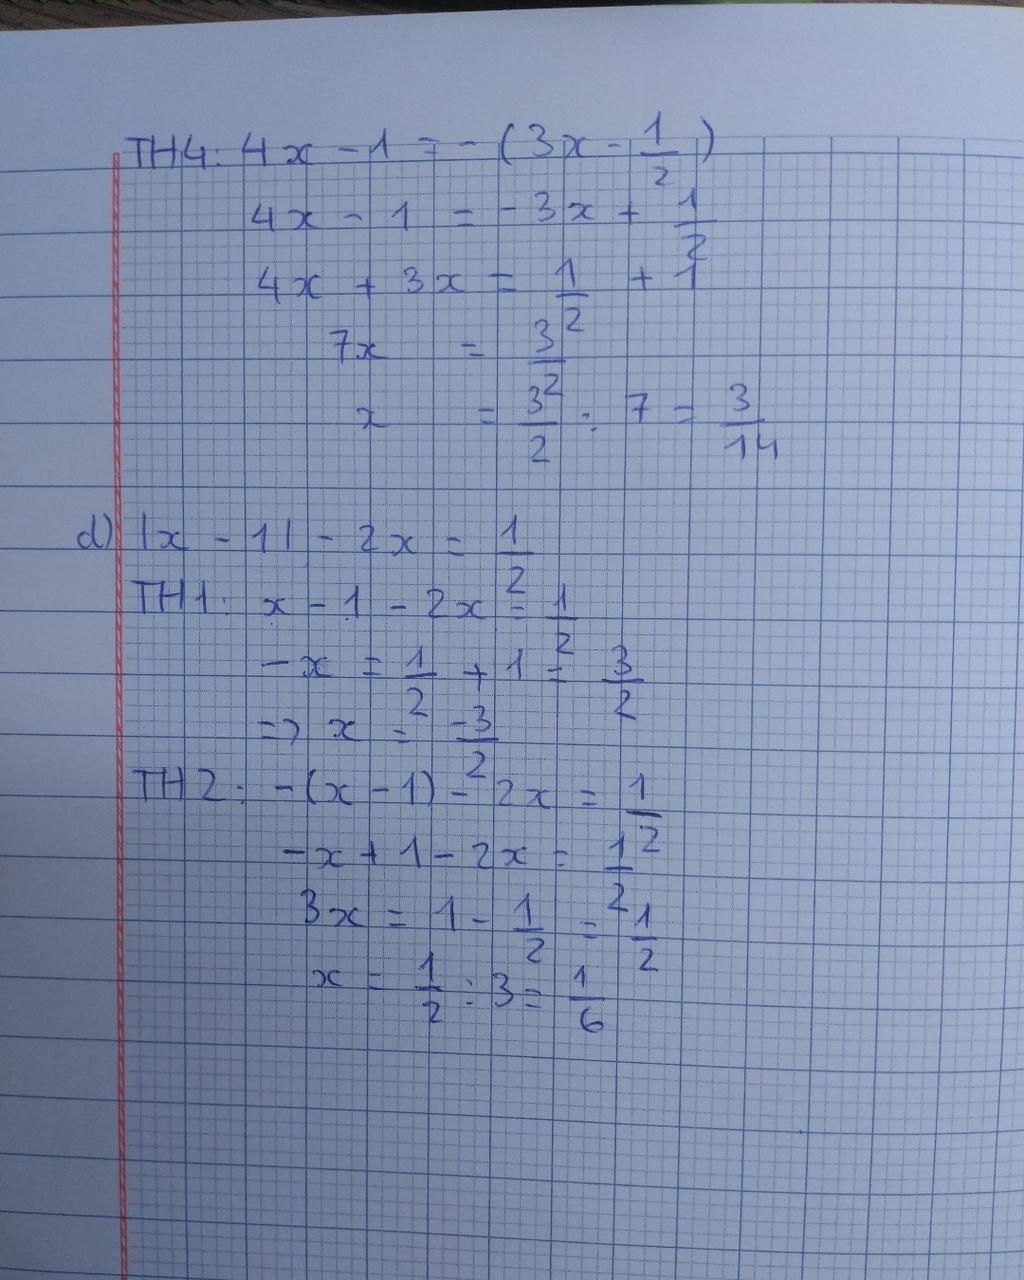 TH4: 4x - 1 = - (3x - 1/2)
4x - 1 = -3x + 1/2
4x + 3x = 1/2 + 1
7x = 3/2
x = 3/2 : 7 = 3/14
d) |x - 1| - 2x = 1/2
TH1: x - 1 - 2x = 1/2
-x = 1/2 + 1 = 3/2
=> x = -3/2
TH2: -(x - 1) - 2x = 1/2
-x + 1 - 2x = 1/2
3x = 1 - 1/2 = 1/2
x = 1/2 : 3 = 1/6